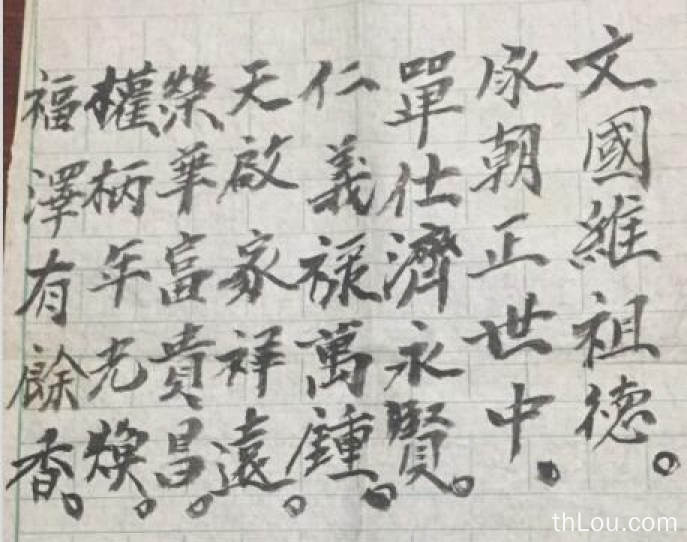 文國維祖德。
承朝正世中。
單仕濟永賢。
仁義祿萬鍾。
天啟家祥遠。
榮華富貴昌。
權柄年光煥。
福澤有餘香。
thLou.com